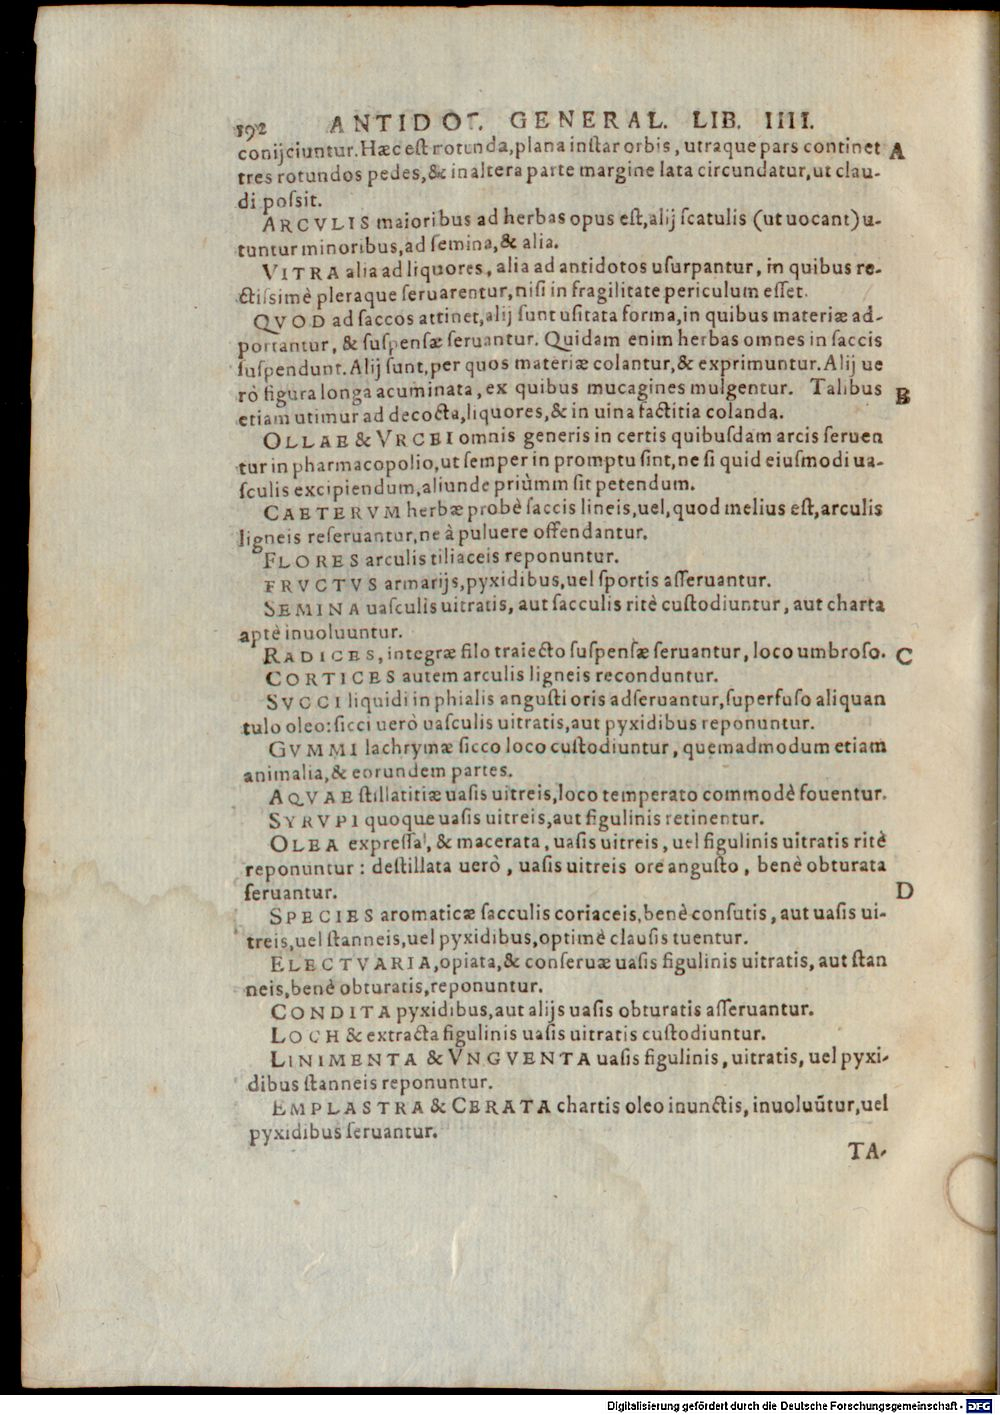 192 ANTIDOT. GENERAL. LIB. IIII.
conijciuntur. Hæc est rotunda, plana instar orbis, utraque pars continet A
tres rotundos pedes, & in altera parte margine lata circundatur, ut clau-
di possit.
ARCVLIS maioribus ad herbas opus est, alij scatulis (ut uocant) u-
tuntur minoribus, ad semina, & alia.
VITRA alia ad liquores, alia ad antidotos usurpantur, in quibus re-
ctissimè pleraque seruarentur, nisi in fragilitate periculum esset.
QVOD ad saccos attinet, alij sunt usitata forma, in quibus materiæ ad-
portantur, & suspensæ seruantur. Quidam enim herbas omnes in saccis
suspendunt. Alij sunt, per quos materiæ colantur, & exprimuntur. Alij ue
rò figura longa acuminata, ex quibus mucagines mulgentur. Talibus B
etiam utimur ad decocta, liquores, & in uina factitia colanda.
OLLAE & VRCEI omnis generis in certis quibusdam arcis seruen
tur in pharmacopolio, ut semper in promptu sint, ne si quid eiusmodi ua-
sculis excipiendum, aliunde priùmm sit petendum.
CAETERVM herbæ probè saccis lineis, uel, quod melius est, arculis
ligneis reseruantur, ne à puluere offendantur.
FLORES arculis tiliaceis reponuntur.
FRVCTVS armarijs, pyxidibus, uel sportis asseruantur.
SEMINA uasculis uitratis, aut sacculis ritè custodiuntur, aut charta
aptè inuoluuntur.
RADICES, integræ filo traiecto suspensæ seruantur, loco umbroso. C
CORTICES autem arculis ligneis reconduntur.
SVCCI liquidi in phialis angusti oris adseruantur, superfuso aliquan
tulo oleo: sicci uerò uasculis uitratis, aut pyxidibus reponuntur.
GVMMI lachrymæ sicco loco custodiuntur, quemadmodum etiam
animalia, & eorundem partes.
AQVAE stillatitiæ uasis uitreis, loco temperato commodè fouentur.
SYRVPI quoque uasis uitreis, aut figulinis retinentur.
OLEA expressa, & macerata, uasis uitreis, uel figulinis uitratis ritè
reponuntur: destillata uerò, uasis uitreis ore angusto, benè obturata
seruantur. D
SPECIES aromaticæ sacculis coriaceis, benè consutis, aut uasis ui-
treis, uel stanneis, uel pyxidibus, optimè clausis tuentur.
ELECTVARIA, opiata, & conseruæ uasis figulinis uitratis, aut stan
neis, benè obturatis, reponuntur.
CONDITA pyxidibus, aut alijs uasis obturatis asseruantur.
LOCH & extracta figulinis uasis uitratis custodiuntur.
LINIMENTA & VNGVENTA uasis figulinis, uitratis, uel pyxi-
dibus stanneis reponuntur.
EMPLASTRA & CERATA chartis oleo inunctis, inuoluũtur, uel
pyxidibus seruantur.
TA-
Digitalisierung gefördert durch die Deutsche Forschungsgemeinschaft - DFG